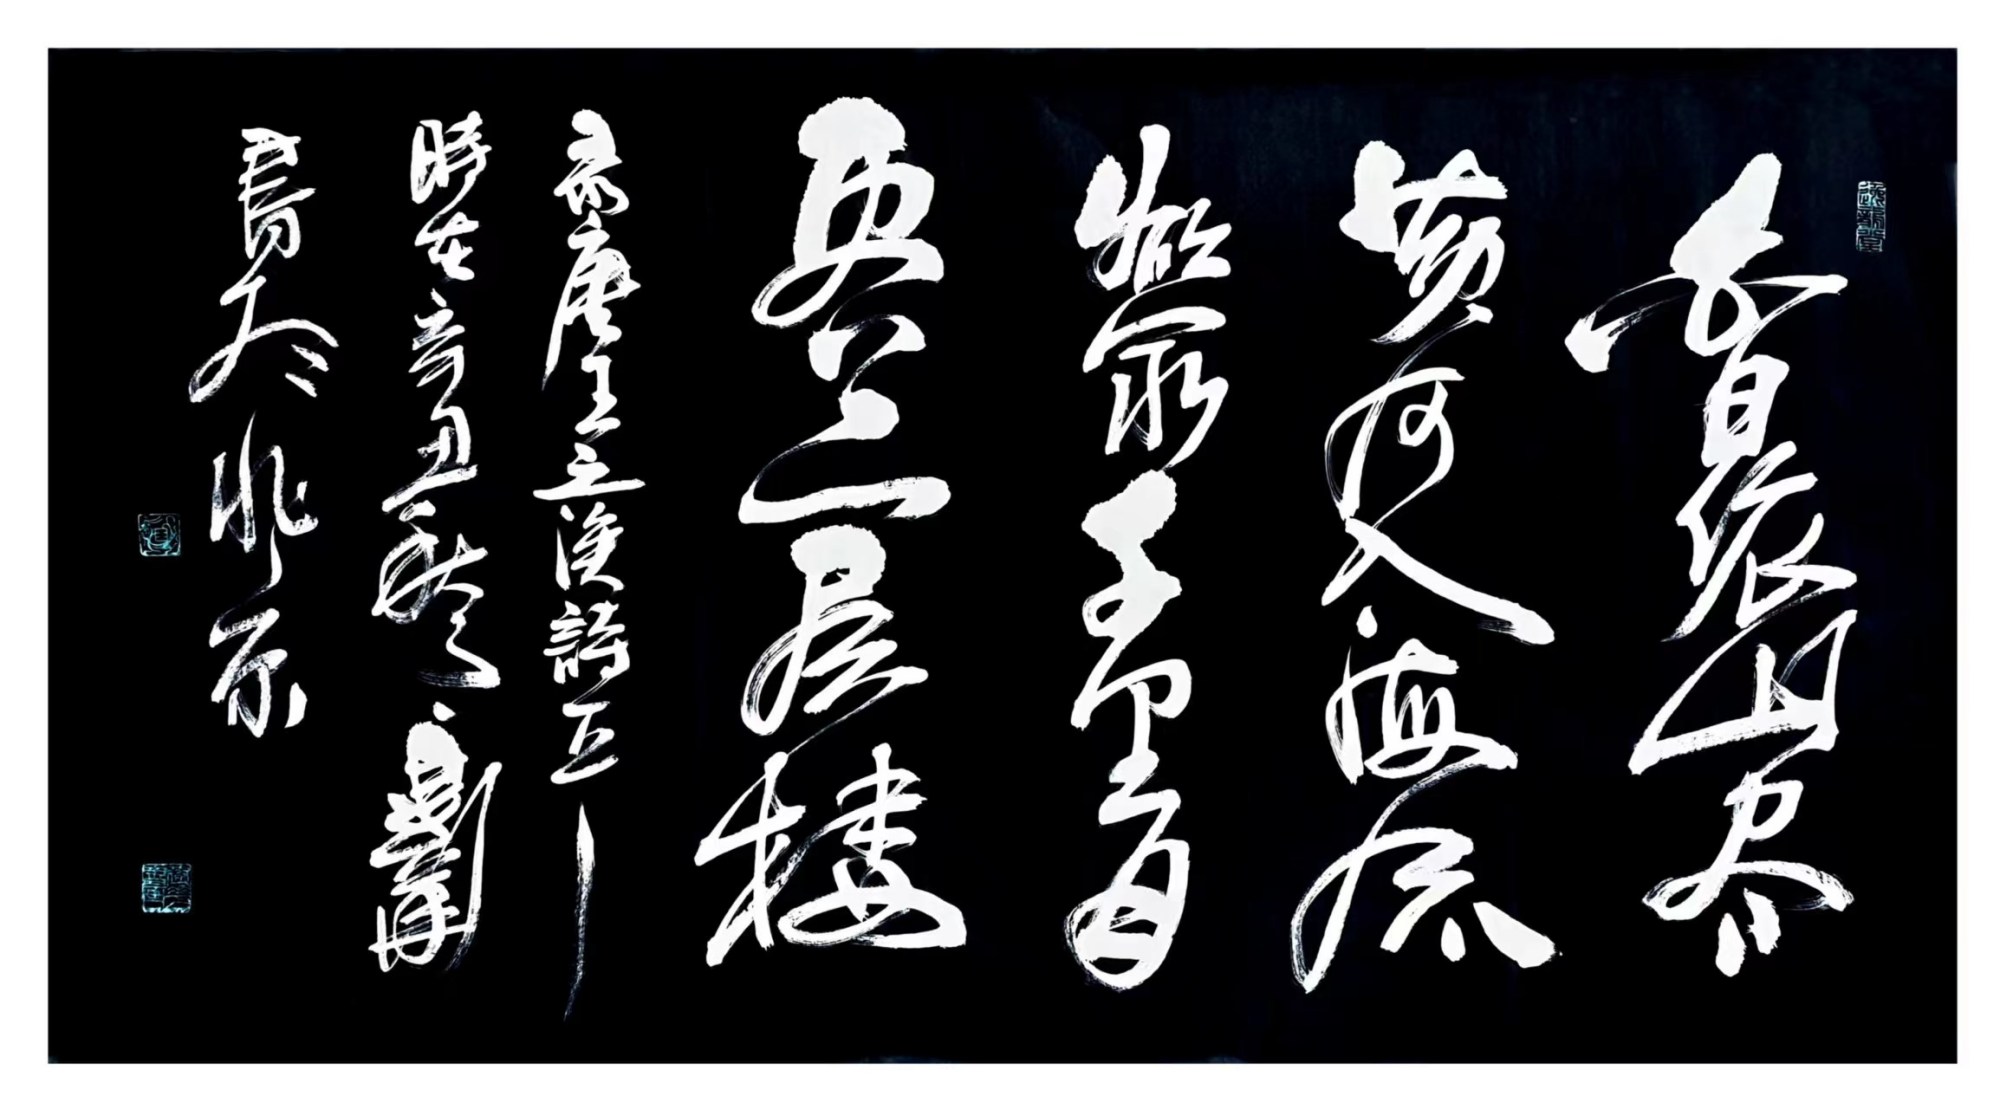 白日依山尽
黄河入海流
欲穷千里目
更上一层楼
录唐王之涣诗五
时在辛丑秋 刘
书于北京